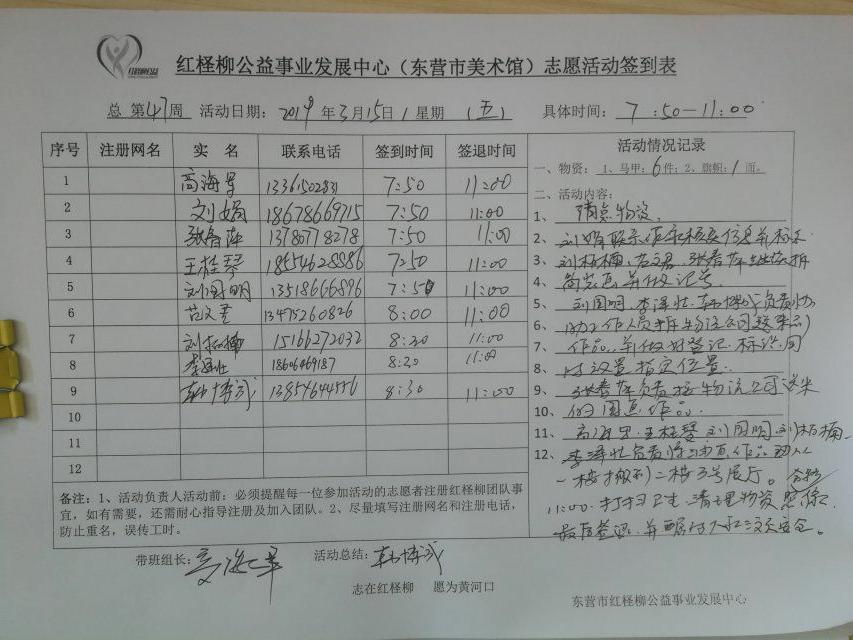 红柽柳公益事业发展中心（东营市美术馆）志愿活动签到表
总 第47周 活动日期：2019年3月15日 星期（五） 具体时间：7:50-11:00
序号 注册网名 实 名 联系电话 签到时间 签退时间 活动情况记录
一、物资：1、马甲：6件；2、旗帜：1面。
二、活动内容：
1 高海 7:50 11:00
2 刘娟 18678669715 7:50 11:00
3 张春萍 13780778278 7:50 11:00
4 王桂琴 18554628886 7:50 11:00
5 刘国明 13518666896 7:50 11:00
6 范文君 13475260826 8:00 11:00
7 刘柘楠 15166272032 8:30 11:00
8 18606469187 8:30 11:00
9 韩博武 13854644556 8:30 11:00
10
11
12
1、 物资。
2、刘娟联系
3、刘柘楠、范文君、张春萍继续拆
4、 并做记号
5、刘国明、李 、韩博武负责协
6、助工作人员 物流公司送来的
7、作品，并做好登记、标识，同
8、时放置指定位置。
9、张春萍负责接物流公司送来
10、的国画作品。
11、高海 、王桂琴、刘国明、刘柘楠、
12、李 负责将 画作品 从
一楼搬到二楼3号展厅。
11:00 打扫卫生、清理物资
最后签退，并 安全。
备注：1、活动负责人活动前：必须提醒每一位参加活动的志愿者注册红柽柳团队事
宜，如有需要，还需耐心指导注册及加入团队。2、尽量填写注册网名和注册电话，
防止重名，误传工时。
带班组长： 活动总结：韩博武
志在红柽柳 愿为黄河口
东营市红柽柳公益事业发展中心